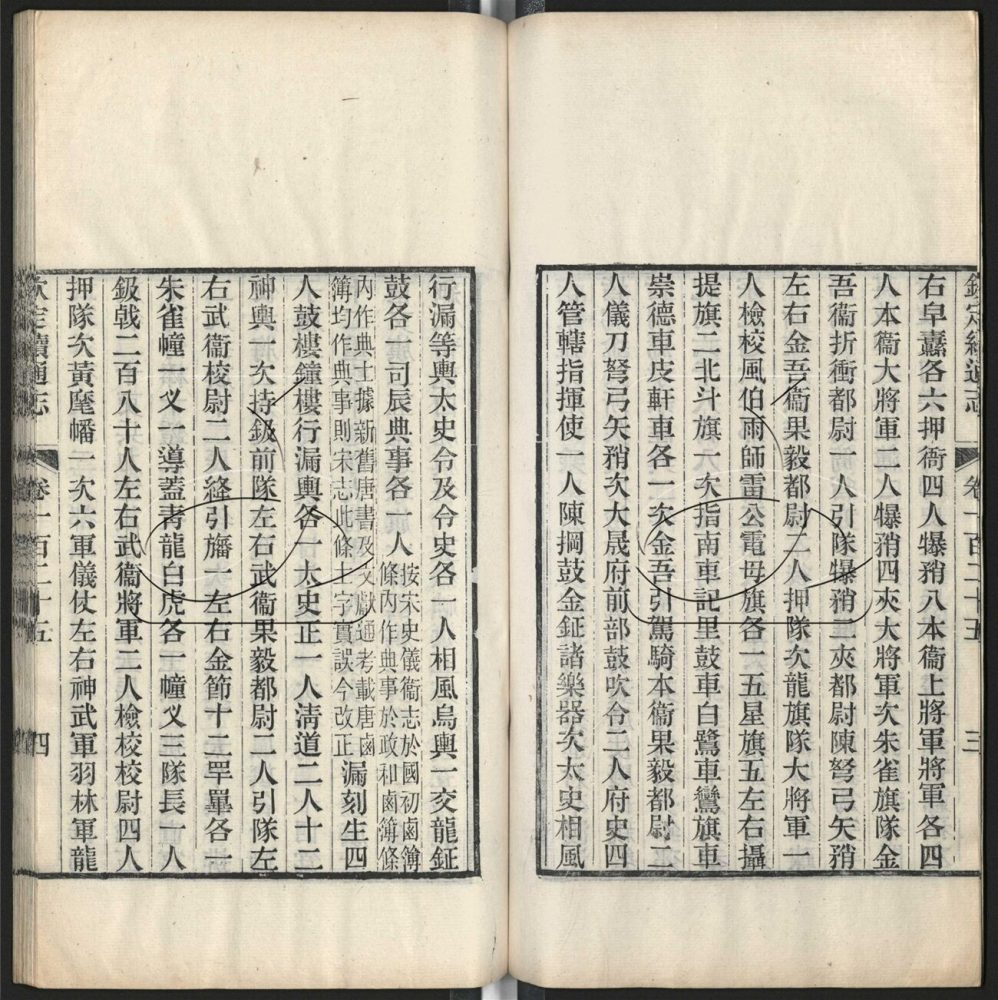 欽定續通志 卷一百二十五 三
右皁纛各六押衙四人犦矟八本衞上將軍將軍各四
人本衞大將軍二人犦矟四夾大將軍次朱雀旗隊金
吾衞折衝都尉一人引隊犦矟二夾都尉陳弩弓矢矟
左右金吾衞果毅都尉二人押隊次龍旗隊大將軍一
人檢校風伯雨師雷公電母旗各一五星旗五左右攝
提旗二北斗旗一次指南車記里鼓車白鷺車鸞旗車
崇德車皮軒車各一次金吾引駕騎本衞果毅都尉二
人儀刀弩弓矢矟次大晟府前部鼓吹令二人府史四
人管轄指揮使一人陳掆鼓金鉦諸樂器次太史相風
行漏等輿太史令及令史各一人相風烏輿一交龍鉦
鼓各一司辰典事各一人按宋史儀衞志於國初鹵簿
條內作典事於政和鹵簿條
內作典士據新舊唐書及文獻通考載唐鹵
簿均作典事則宋志此條士字實誤今改正漏刻生四
人鼓樓鐘樓行漏輿各一太史正一人淸道二人十二
神輿一次持鈒前隊左右武衞果毅都尉二人引隊左
右武衞校尉二人絳引旛一左右金節十二罕罼各一
朱雀幢一义一導蓋靑龍白虎各一幢义三隊長一人
鈒戟二百八十人左右武衞將軍二人檢校校尉四人
押隊次黃麾幡一次六軍儀仗左右神武軍羽林軍龍
欽定續通志 卷一百二十五 四